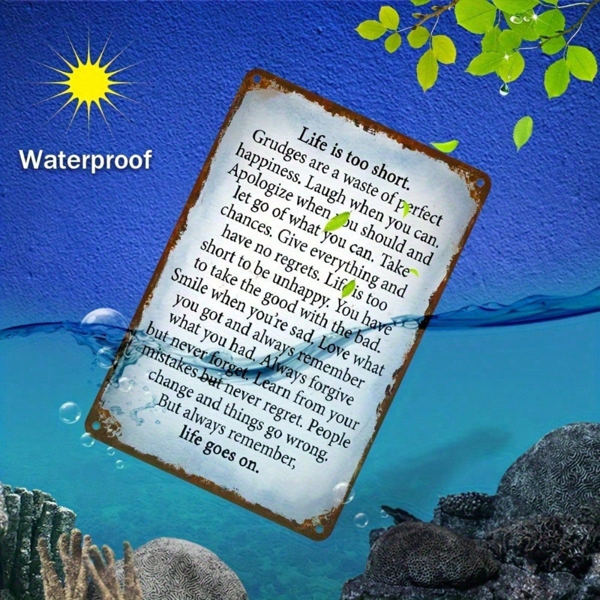 Waterproof
Life is too short.
Grudges are a waste of perfect
happiness. Laugh when you can.
Apologize when you should and
let go of what you can. Take
chances. Give everything and
have no regrets. Life is too
short to be unhappy. You have
to take the good with the bad.
Smile when you're sad. Love what
you got and always remember
what you had. Always forgive
but never forget. Learn from your
mistakes but never regret. People
change and things go wrong.
But always remember,
life goes on.